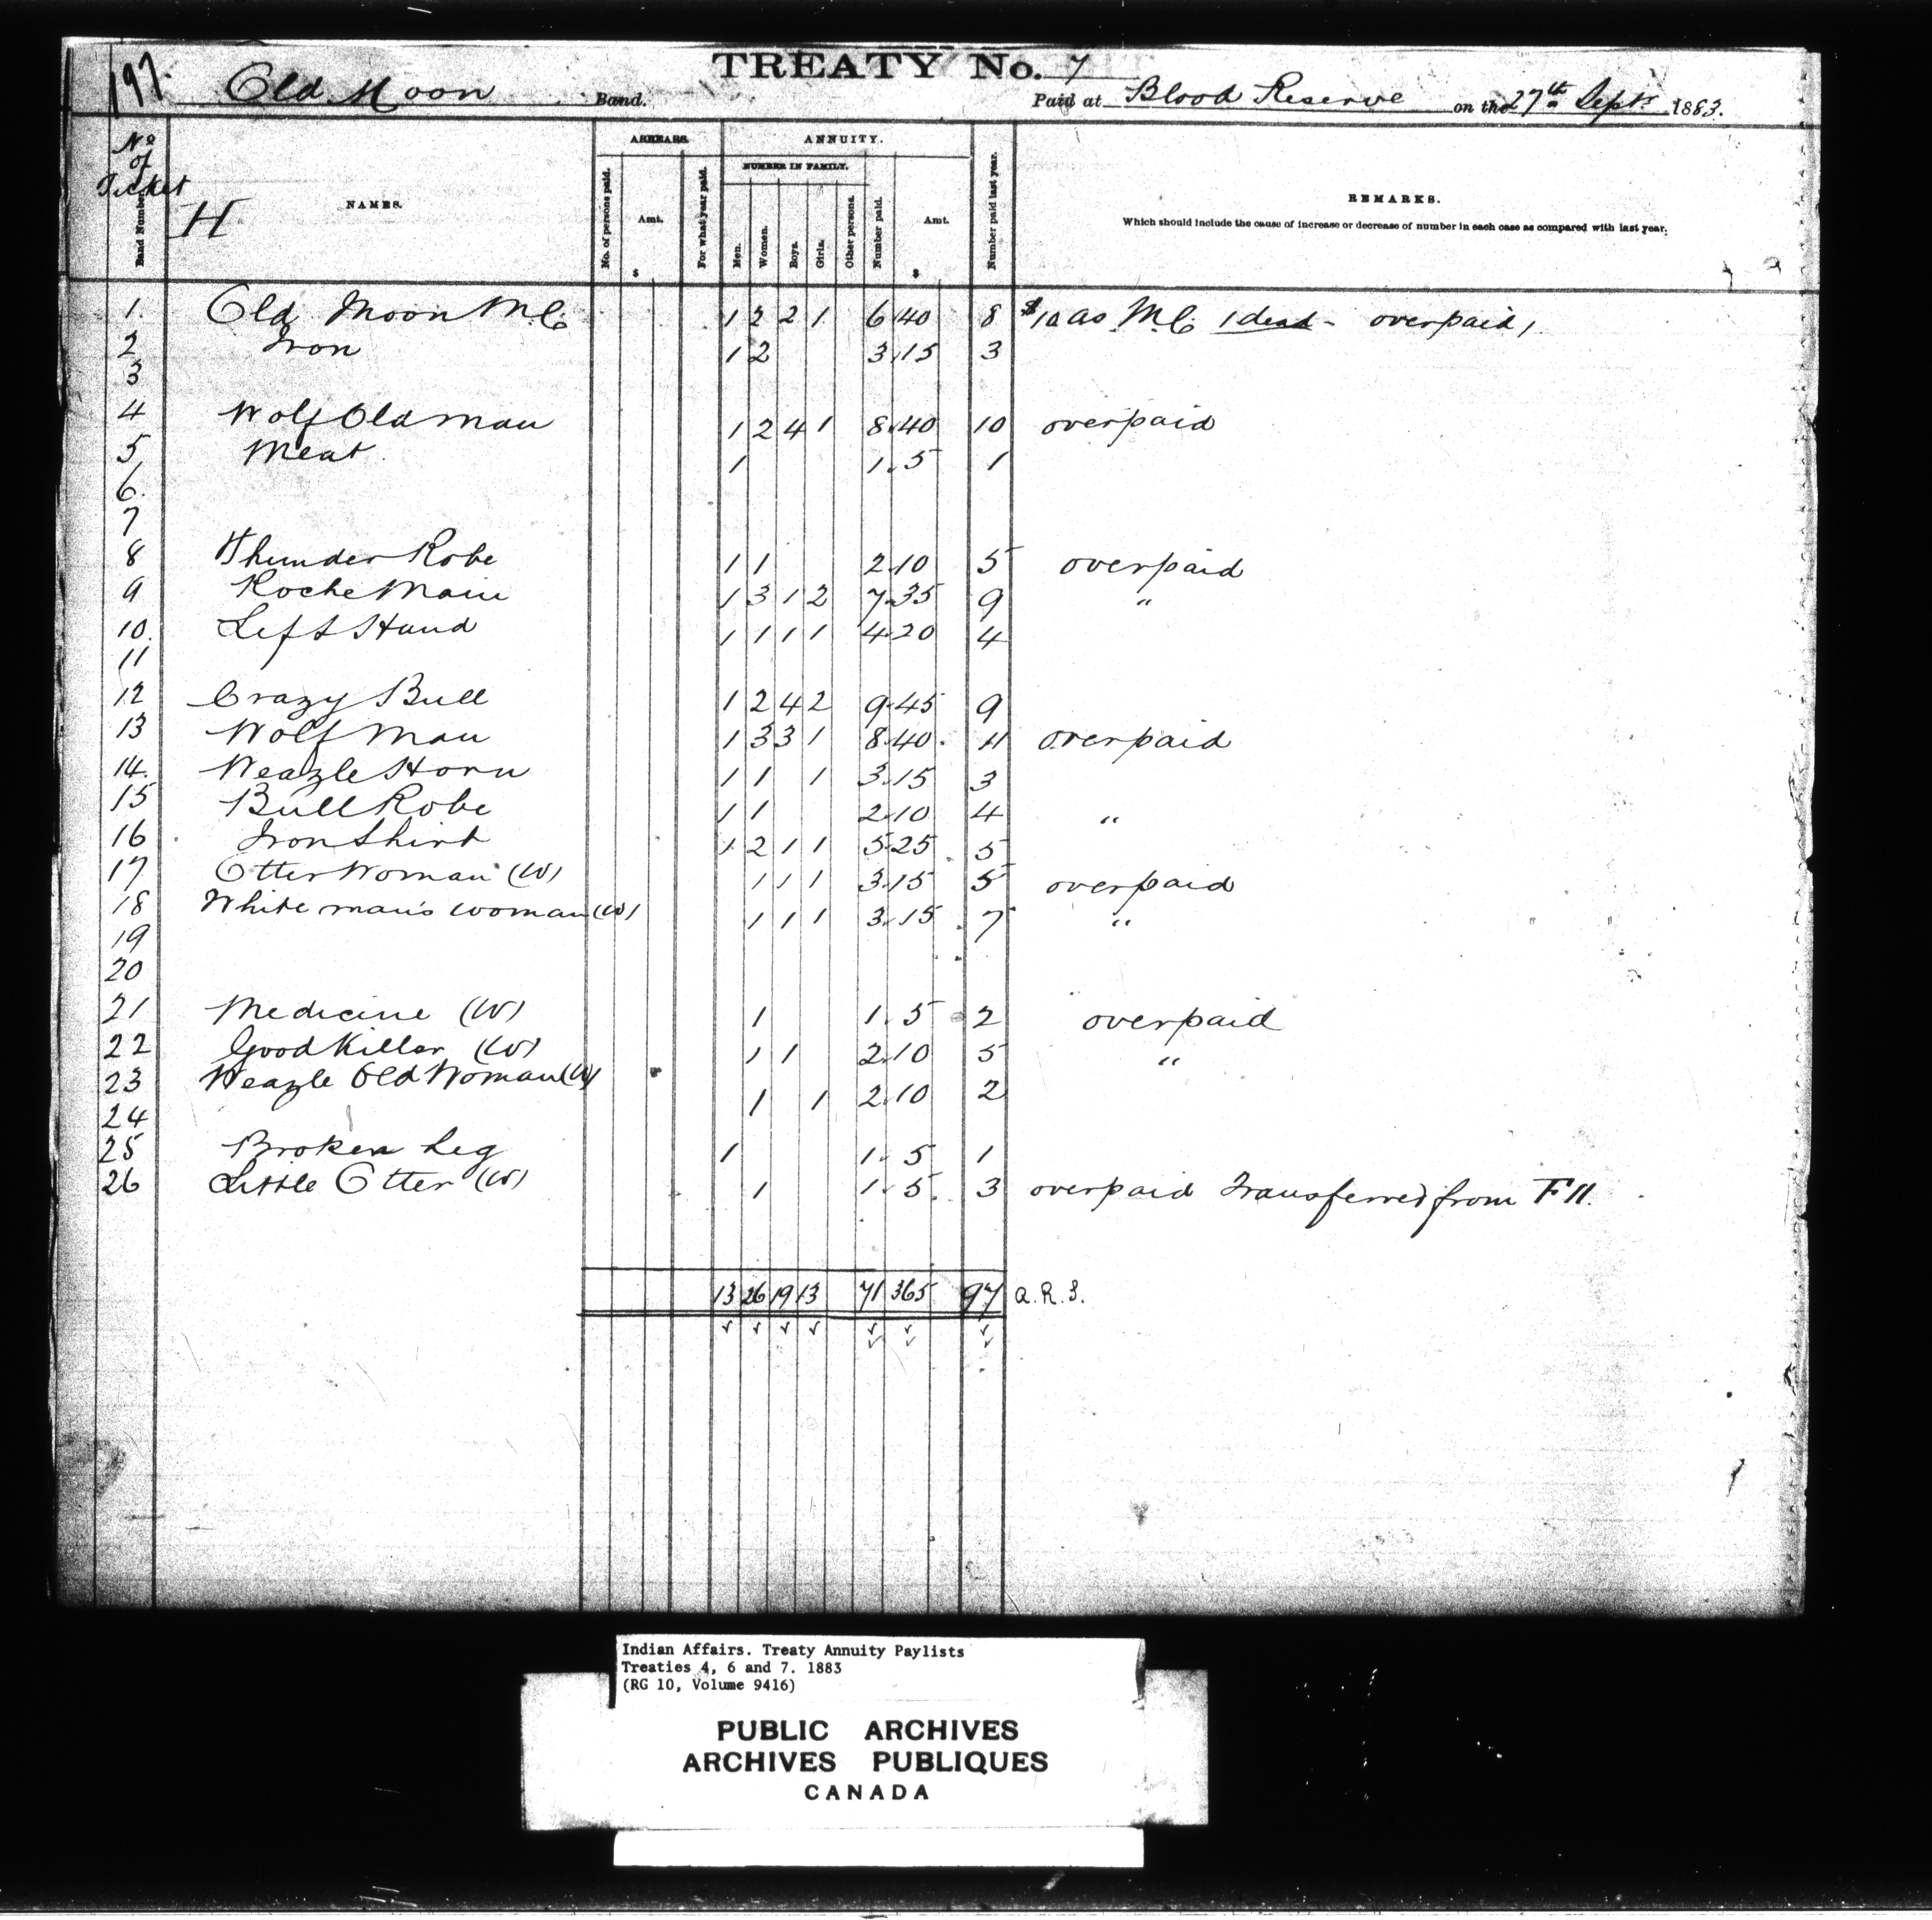 TREATY No. 7
197. Old Moon Band. Paid at Blood Reserve on the 27th Sept. 1883.
No of Ticket
Band Number
H
NAMES.
ARREARS.
No. of persons paid.
Amt.
$
For what year paid.
ANNUITY.
NUMBER IN FAMILY.
Men.
Women.
Boys.
Girls.
Other persons.
Number paid.
Amt.
$
Number paid last year.
REMARKS.
Which should include the cause of increase or decrease of number in each case as compared with last year.
1. Old Moon M.C. 1 2 2 1 6 40 8 $10 as M.C. 1 dead - overpaid 1.
2 Iron 1 2 3 15 3
3
4 Wolf Old man 1 2 4 1 8 40 10 overpaid
5 Meat 1 1 5 1
6.
7
8 Thunder Robe 1 1 2 10 5 overpaid
9 Roche Main 1 3 1 2 7 35 9 "
10. Left Hand 1 1 1 1 4 20 4
11
12 Crazy Bull 1 2 4 2 9 45 9
13 Wolf Man 1 3 3 1 8 40. 11 overpaid
14. Weazle Horn 1 1 1 3 15 3
15 Bull Robe 1 1 2 10 4 "
16 Iron Shirt 1 2 1 1 5 25 5
17 Otter Woman (W) 1 1 1 3 15 5 overpaid
18 White man's woman (W) 1 1 1 3 15 7 "
19
20
21 Medicine (W) 1 1 5 2 overpaid
22 Good Killer (W) 1 1 2 10 5 "
23 Weazle Old Woman (W) 1 1 2 10 2
24
25 Broken Leg 1 1 5 1
26 Little Otter (W) 1 1 5 3 overpaid Transferred from F 11.
13 26 19 13 71 365 97 a.R.S.
Indian Affairs. Treaty Annuity Paylists
Treaties 4, 6 and 7. 1883
(RG 10, Volume 9416)
PUBLIC ARCHIVES
ARCHIVES PUBLIQUES
CANADA